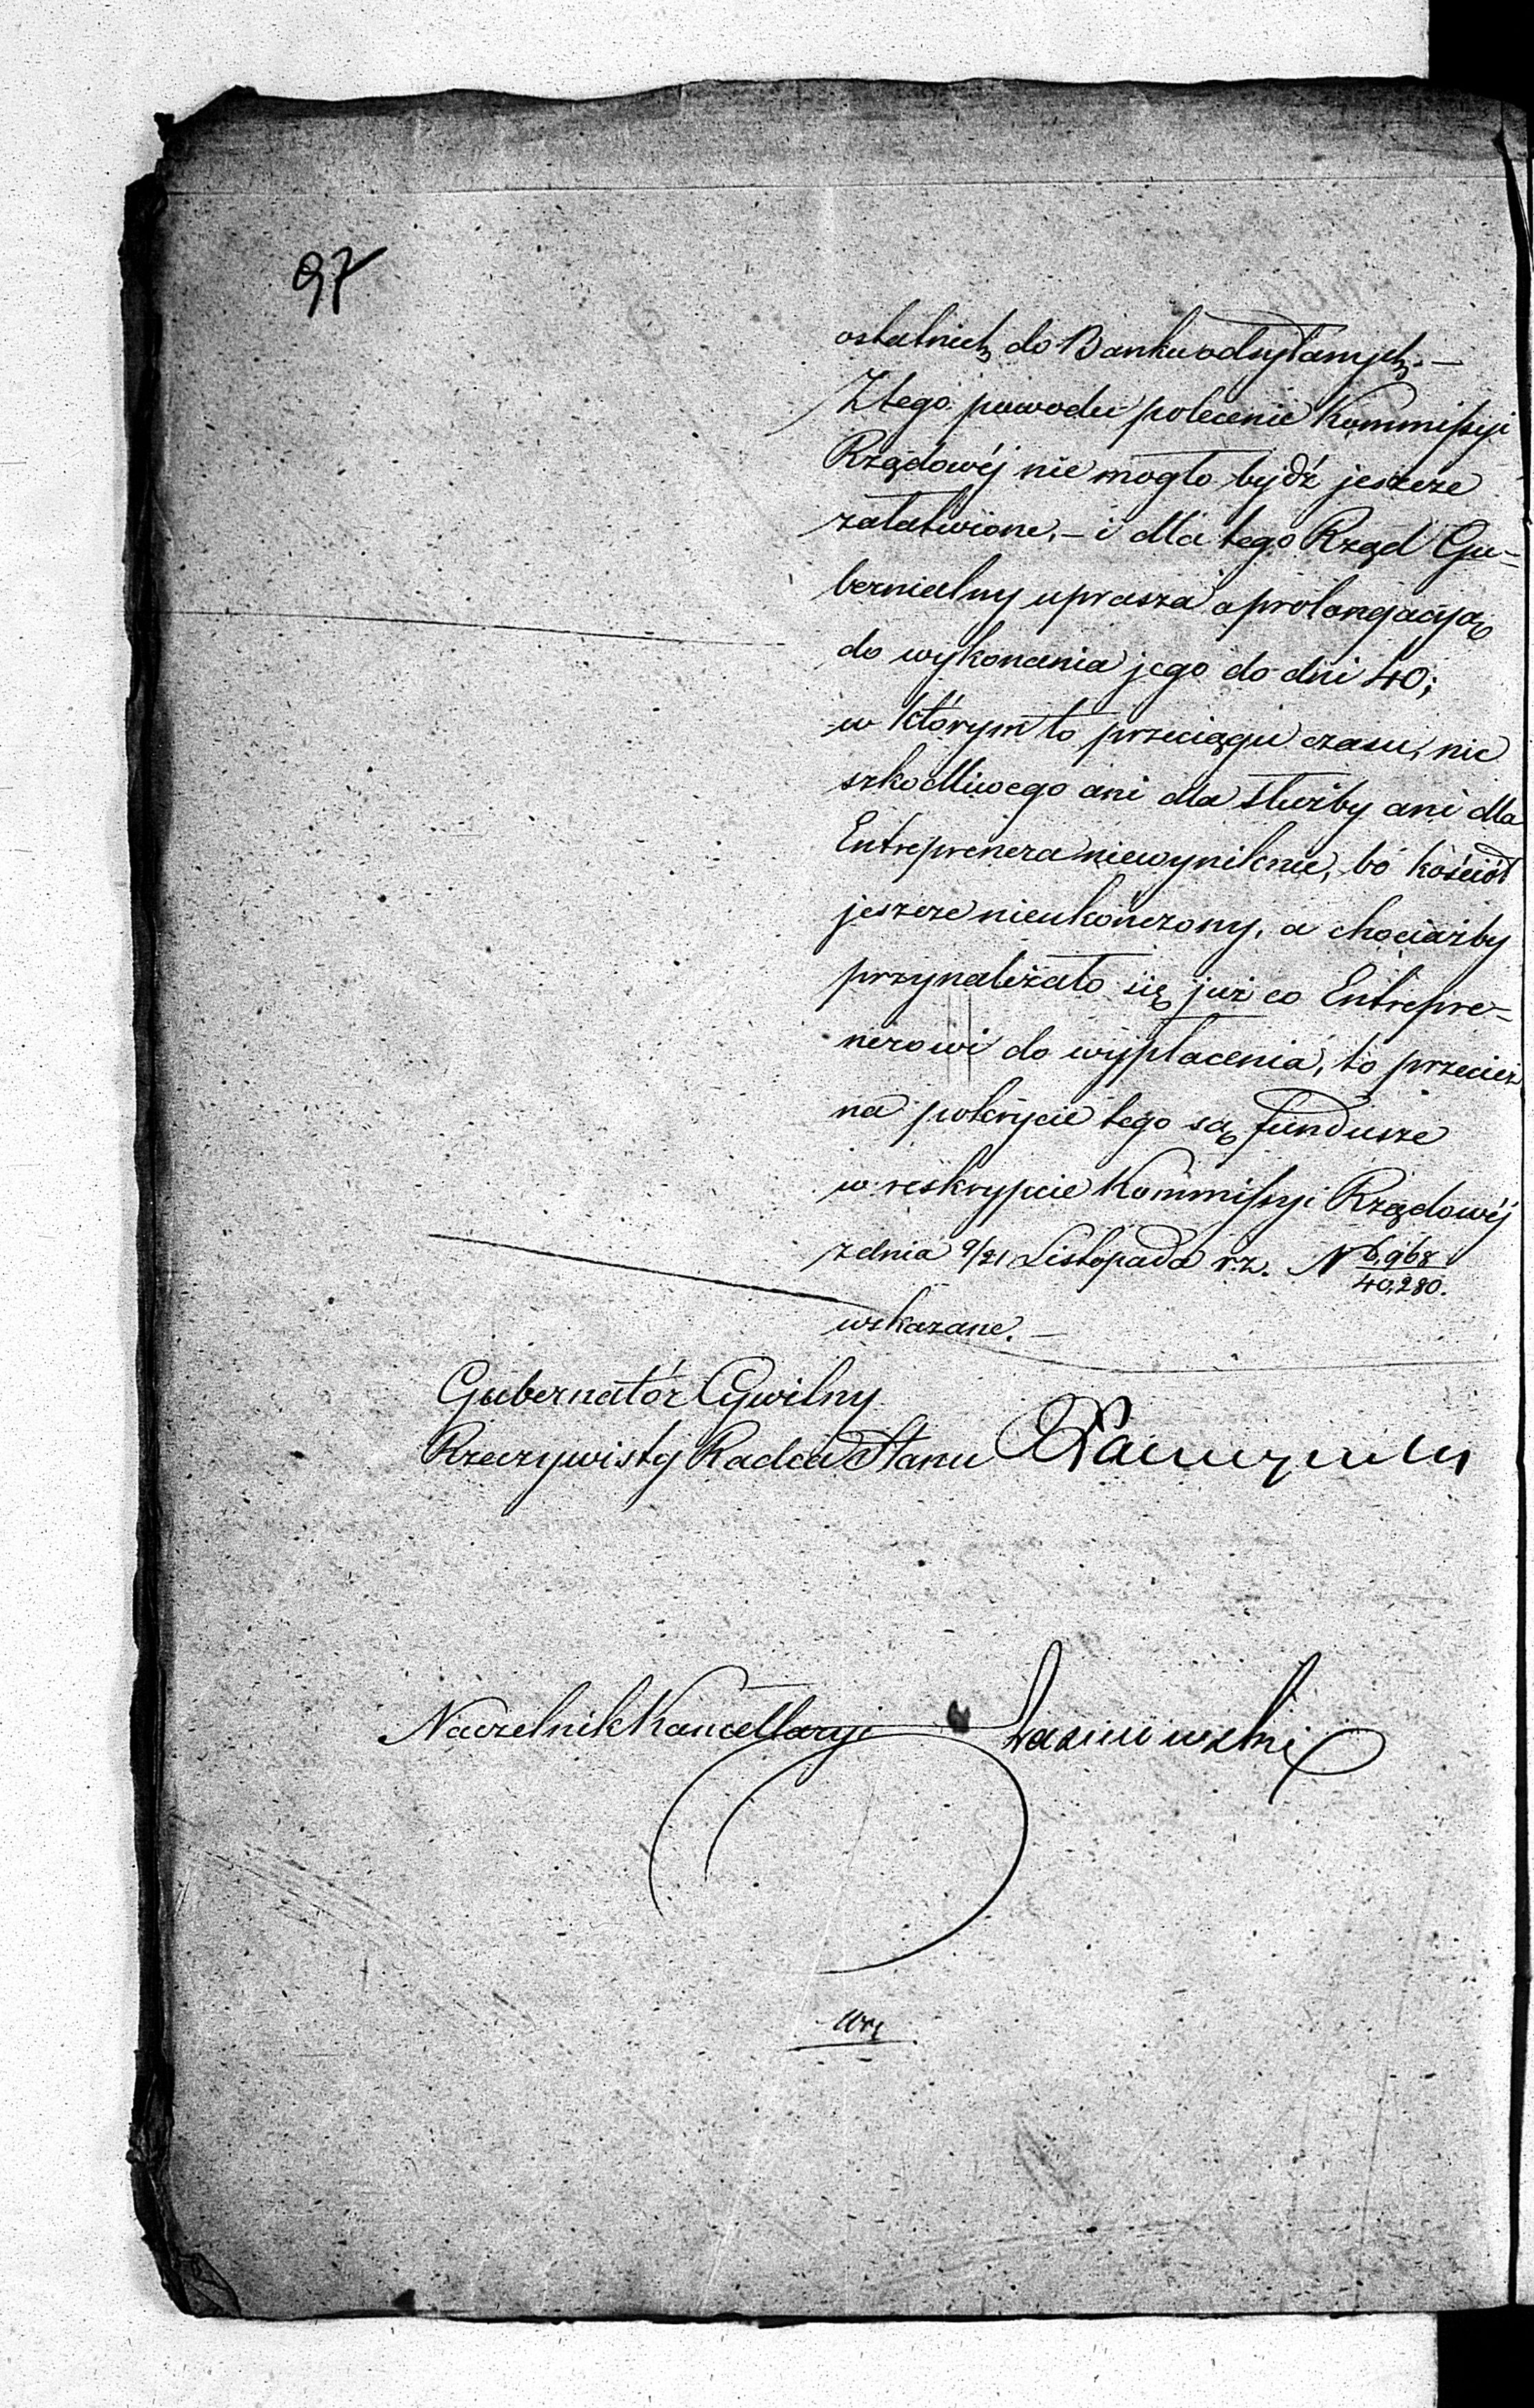 97
ostatnich do Banku odsyłanych. —
Z tego powodu polecenie Kommissyi
Rządowéj nie mogło bydź jeszcze
załatwione, – i dla tego Rząd Gu-
bernialny uprasza o prolongacyą
do wykonania jego do dni 40;
w którym to przeciągu czasu, nic
szkodliwego ani dla służby ani dla
Entreprenera niewyniknie, bo kościół
jeszcze nieukończony, a chociażby
przynależało się już co Entrepre-
nerowi do wypłacenia, to przecież
na pokrycie tego są fundusze
w reskrypcie Kommissyi Rządowéj
z dnia 9/21 Listopada r. z. N 6,968/40,280.
wskazane. —
Gubernatór Cywilny
Rzeczywisty Radca Stanu
Naczelnik Kancellaryi